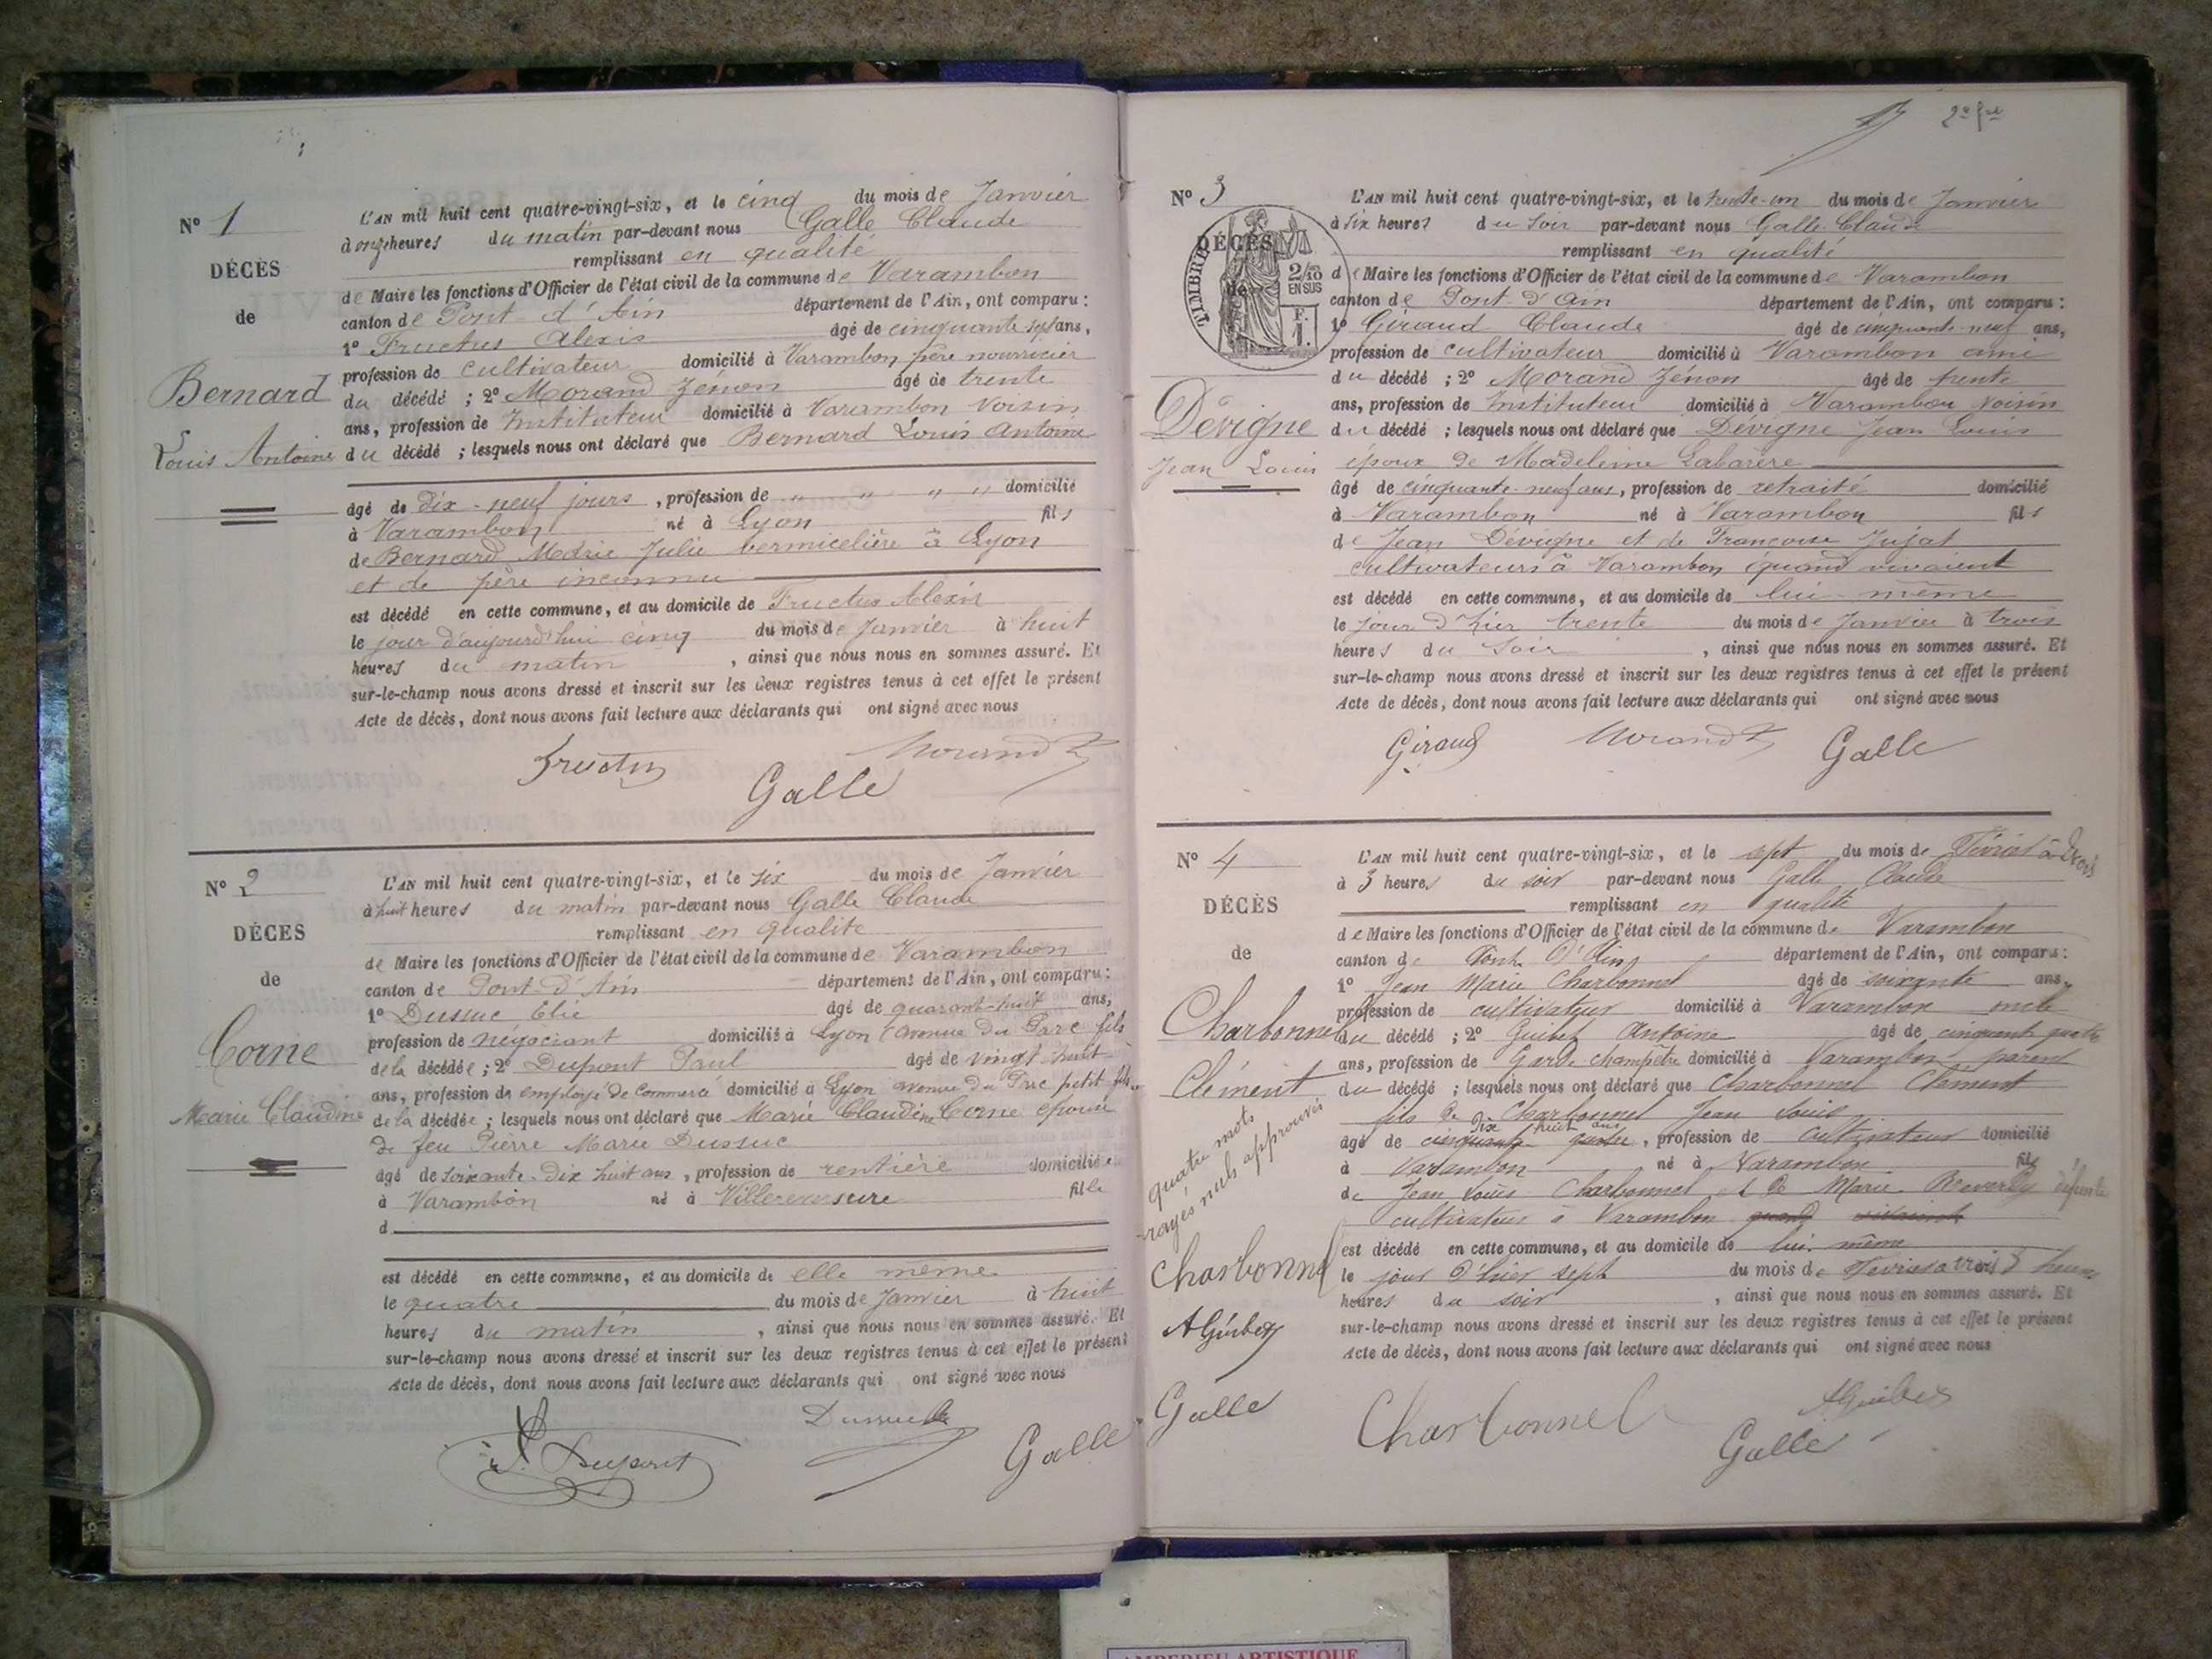 2e f et
N° 1
DÉCÈS
de
Bernard
Louis Antoine
L'AN mil huit cent quatre-vingt-six, et le cinq du mois de Janvier
à onze heures du matin par-devant nous Galle Claude
remplissant en qualité
de Maire les fonctions d'Officier de l'état civil de la commune de Varambon
canton de Pont d'Ain département de l'Ain, ont comparu :
1° Fructus Alexis âgé de cinquante sept ans,
profession de cultivateur domicilié à Varambon père nourricier
du décédé ; 2° Morand Zénon âgé de trente
ans, profession de Instituteur domicilié à Varambon voisin
du décédé ; lesquels nous ont déclaré que Bernard Louis Antoine
âgé de dix-neuf jours, profession de " " " " domicilié
à Varambon né à Lyon fils
de Bernard Marie Julie vermicelière à Lyon
et de père inconnu
est décédé en cette commune, et au domicile de Fructus Alexis
le jour d'aujourd'hui cinq du mois de Janvier à huit
heures du matin, ainsi que nous nous en sommes assuré. Et
sur-le-champ nous avons dressé et inscrit sur les deux registres tenus à cet effet le présent
Acte de décès, dont nous avons fait lecture aux déclarants qui ont signé avec nous
Fructus Morand Z
Galle
N° 2
DÉCES
de
Corne
Marie Claudine
L'AN mil huit cent quatre-vingt-six, et le six du mois de Janvier
à huit heures du matin par-devant nous Galle Claude
remplissant en qualité
de Maire les fonctions d'Officier de l'état civil de la commune de Varambon
canton de Pont d'Ain département de l'Ain, ont comparu :
1° Dussuc Elie âgé de quarant-huit ans,
profession de négociant domicilié à Lyon avenue du Parc fils
de la décédée ; 2° Dupont Paul âgé de vingt huit
ans, profession de employé de commerce domicilié à Lyon avenue du Parc petit fils
de la décédée ; lesquels nous ont déclaré que Marie Claudine Corne épouse
de feu Pierre Marie Dussuc
âgé de soixante-dix huit ans, profession de rentière domiciliée
à Varambon né à Villereversure fille
d
est décédé en cette commune, et au domicile de elle même
le quatre du mois de Janvier à huit
heures du matin, ainsi que nous nous en sommes assuré. Et
sur-le-champ nous avons dressé et inscrit sur les deux registres tenus à cet effet le présent
Acte de décès, dont nous avons fait lecture aux déclarants qui ont signé avec nous
P. Dupont Dussuc Galle
N° 3
DÉCÈS
de
TIMBRE
2/10
EN SUS
F.
1.
Dévigne
Jean Louis
L'AN mil huit cent quatre-vingt-six, et le trente-un du mois de Janvier
à six heures du soir par-devant nous Galle Claude
remplissant en qualité
de Maire les fonctions d'Officier de l'état civil de la commune de Varambon
canton de Pont d'Ain département de l'Ain, ont comparu :
1° Giraud Claude âgé de cinquante-neuf ans,
profession de cultivateur domicilié à Varambon ami
du décédé ; 2° Morand Zénon âgé de trente
ans, profession de Instituteur domicilié à Varambon voisin
du décédé ; lesquels nous ont déclaré que Dévigne Jean Louis
époux de Madeleine Labarère
âgé de cinquante-neuf ans, profession de retraité domicilié
à Varambon né à Varambon fils
de Jean Dévigne et de Françoise Jujat
cultivateurs à Varambon quand vivaient
est décédé en cette commune, et au domicile de lui-même
le jour d'hier trente du mois de Janvier à trois
heures du soir, ainsi que nous nous en sommes assuré. Et
sur-le-champ nous avons dressé et inscrit sur les deux registres tenus à cet effet le présent
Acte de décès, dont nous avons fait lecture aux déclarants qui ont signé avec nous
Giraud Morand Z Galle
N° 4
DÉCÈS
de
Charbonnel
Clément
quatre mots
rayés nuls approuvés
Charbonnel
A Guibet
Galle
L'AN mil huit cent quatre-vingt-six, et le sept du mois de Février à trois
à 3 heures du soir par-devant nous Galle Claude
remplissant en qualité
de Maire les fonctions d'Officier de l'état civil de la commune de Varambon
canton de Pont d'Ain département de l'Ain, ont comparu :
1° Jean Marie Charbonnel âgé de soixante ans,
profession de cultivateur domicilié à Varambon oncle
du décédé ; 2° Guibet Antoine âgé de cinquant quatre
ans, profession de Garde champêtre domicilié à Varambon parent
du décédé ; lesquels nous ont déclaré que Charbonnel Clément
fils de Charbonnel Jean Louis
dix huit ans
âgé de cinquante quatre, profession de cultivateur domicilié
à Varambon né à Varambon fils
de Jean Louis Charbonnel et de Marie défunte
cultivateur à Varambon quand vivaient
est décédé en cette commune, et au domicile de lui-même
le jour d'hier sept du mois de Fevrier a trois 3 heures
heures du soir, ainsi que nous nous en sommes assuré. Et
sur-le-champ nous avons dressé et inscrit sur les deux registres tenus à cet effet le présent
Acte de décès, dont nous avons fait lecture aux déclarants qui ont signé avec nous
Charbonnel A Guibet
Galle